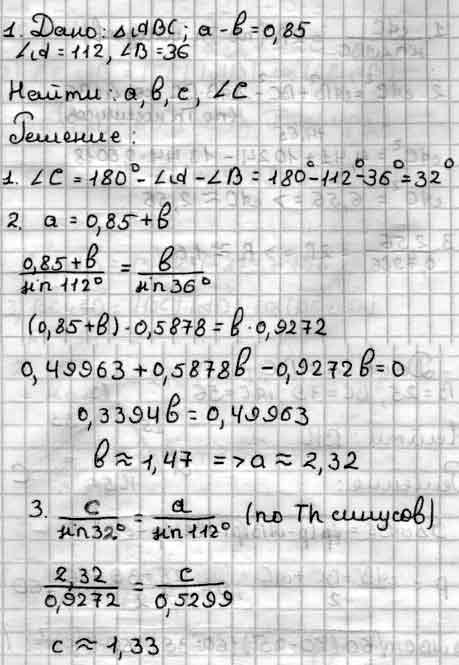 1. Дано: △ABC; a-b=0,85
∠A=112, ∠B=36
Найти: a, b, c, ∠C
Решение:
1. ∠C = 180° - ∠A - ∠B = 180°-112°-36°=32°
2. a = 0,85+b
0,85+b/sin 112° = b/sin 36°
(0,85+b)·0,5878=b·0,9272
0,49963+0,5878b-0,9272b=0
0,3394b=0,49963
b≈1,47 => a≈2,32
3. c/sin32° = a/sin112° (по Th синусов)
2,32/0,9272 = c/0,5299
c≈1,33